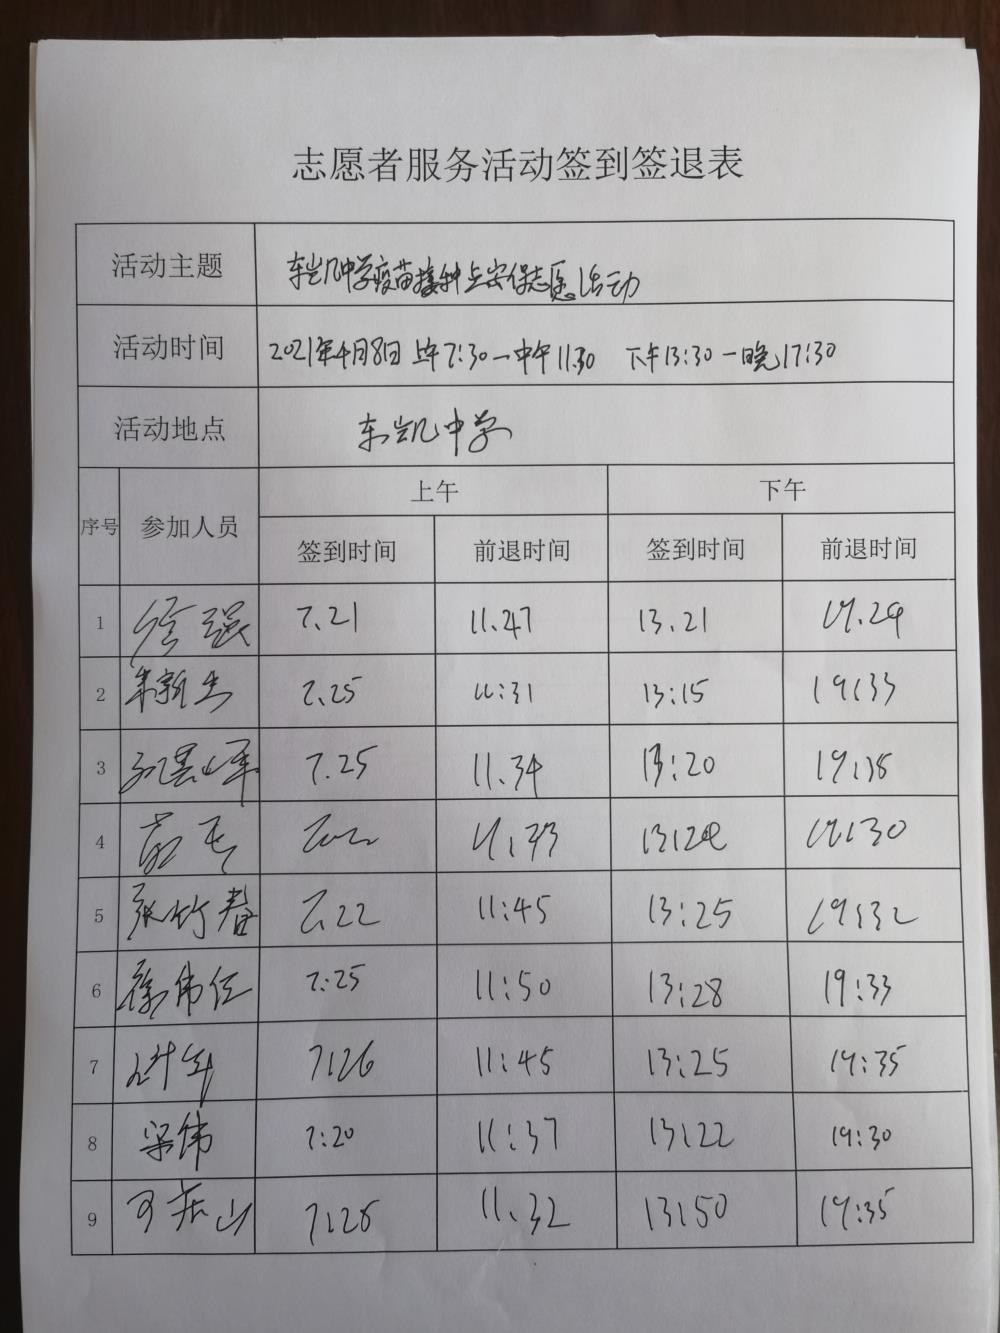 志愿者服务活动签到签退表
活动主题 东凯中学疫苗接种点安保志愿活动
活动时间 2021年4月8日 上午7:30一中午11.30 下午13:30一晚17:30
活动地点 东凯中学
序号 参加人员 上午 下午
签到时间 前退时间 签到时间 前退时间
1 徐强 7.21 11.47 13.21 19.24
2 朱新杰 7.25 11:31 13:15 19:33
3 7.25 11.34 13:20 19:38
4 11:33 13:24 19:30
5 张竹春 7.22 11:45 13:25 19:32
6 徐伟红 7:25 11:50 13:28 19:33
7 7:26 11:45 13:25 19:35
8 梁伟 7:20 11:37 13:22 19:30
9 7:28 11.32 13:50 19:35